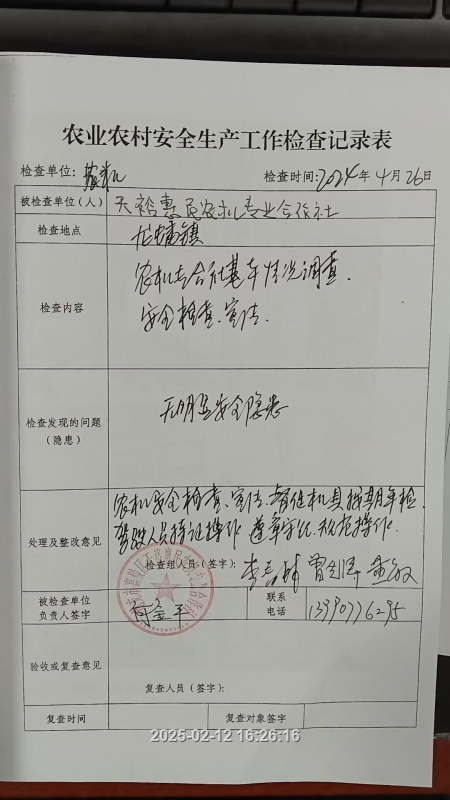 农业农村安全生产工作检查记录表
检查单位: 农机 检查时间: 2024年4月26日
被检查单位(人) 天裕惠民农机专业合作社
检查地点 龙蟠镇
检查内容
农机专合社基本情况调查.
安全检查、宣传.
检查发现的问题
(隐患)
无明显安全隐患
处理及整改意见
农机安全检查、宣传、督促机具按期年检.
驾驶人员持证操作 遵章守纪、规范操作.
检查组人员(签字):
被检查单位
负责人签字
联系
电话
13990776295
验收或复查意见
复查人员(签字):
复查时间 复查对象签字
2025-02-12 16:26:16